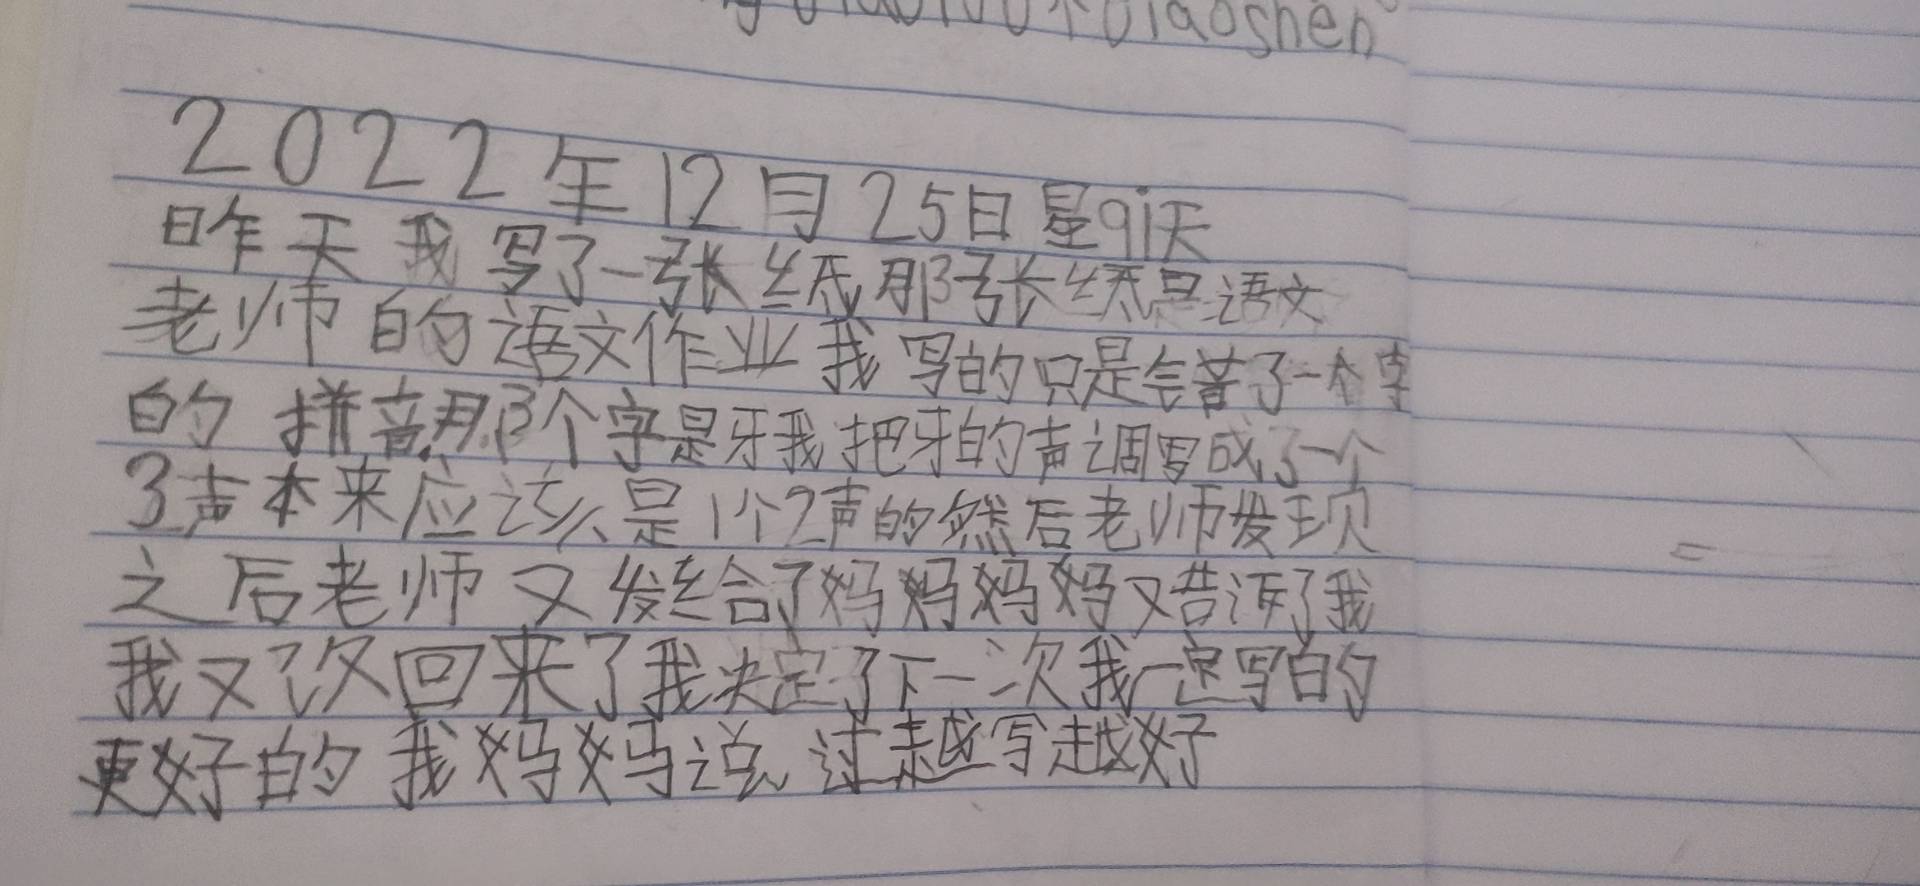 2022年12月25日星qi天
昨天我写了一张纸那张纸是语文
老师的语文作业我写的只是写错了一个字
的拼音那个字是牙我把牙的声调写成了一个
3声本来应该是1个2声的然后老师发现
之后老师又发给了妈妈妈妈又告诉了我
我又改回来了我决定了下一次我一定写的
更好的我妈妈说过越写越好